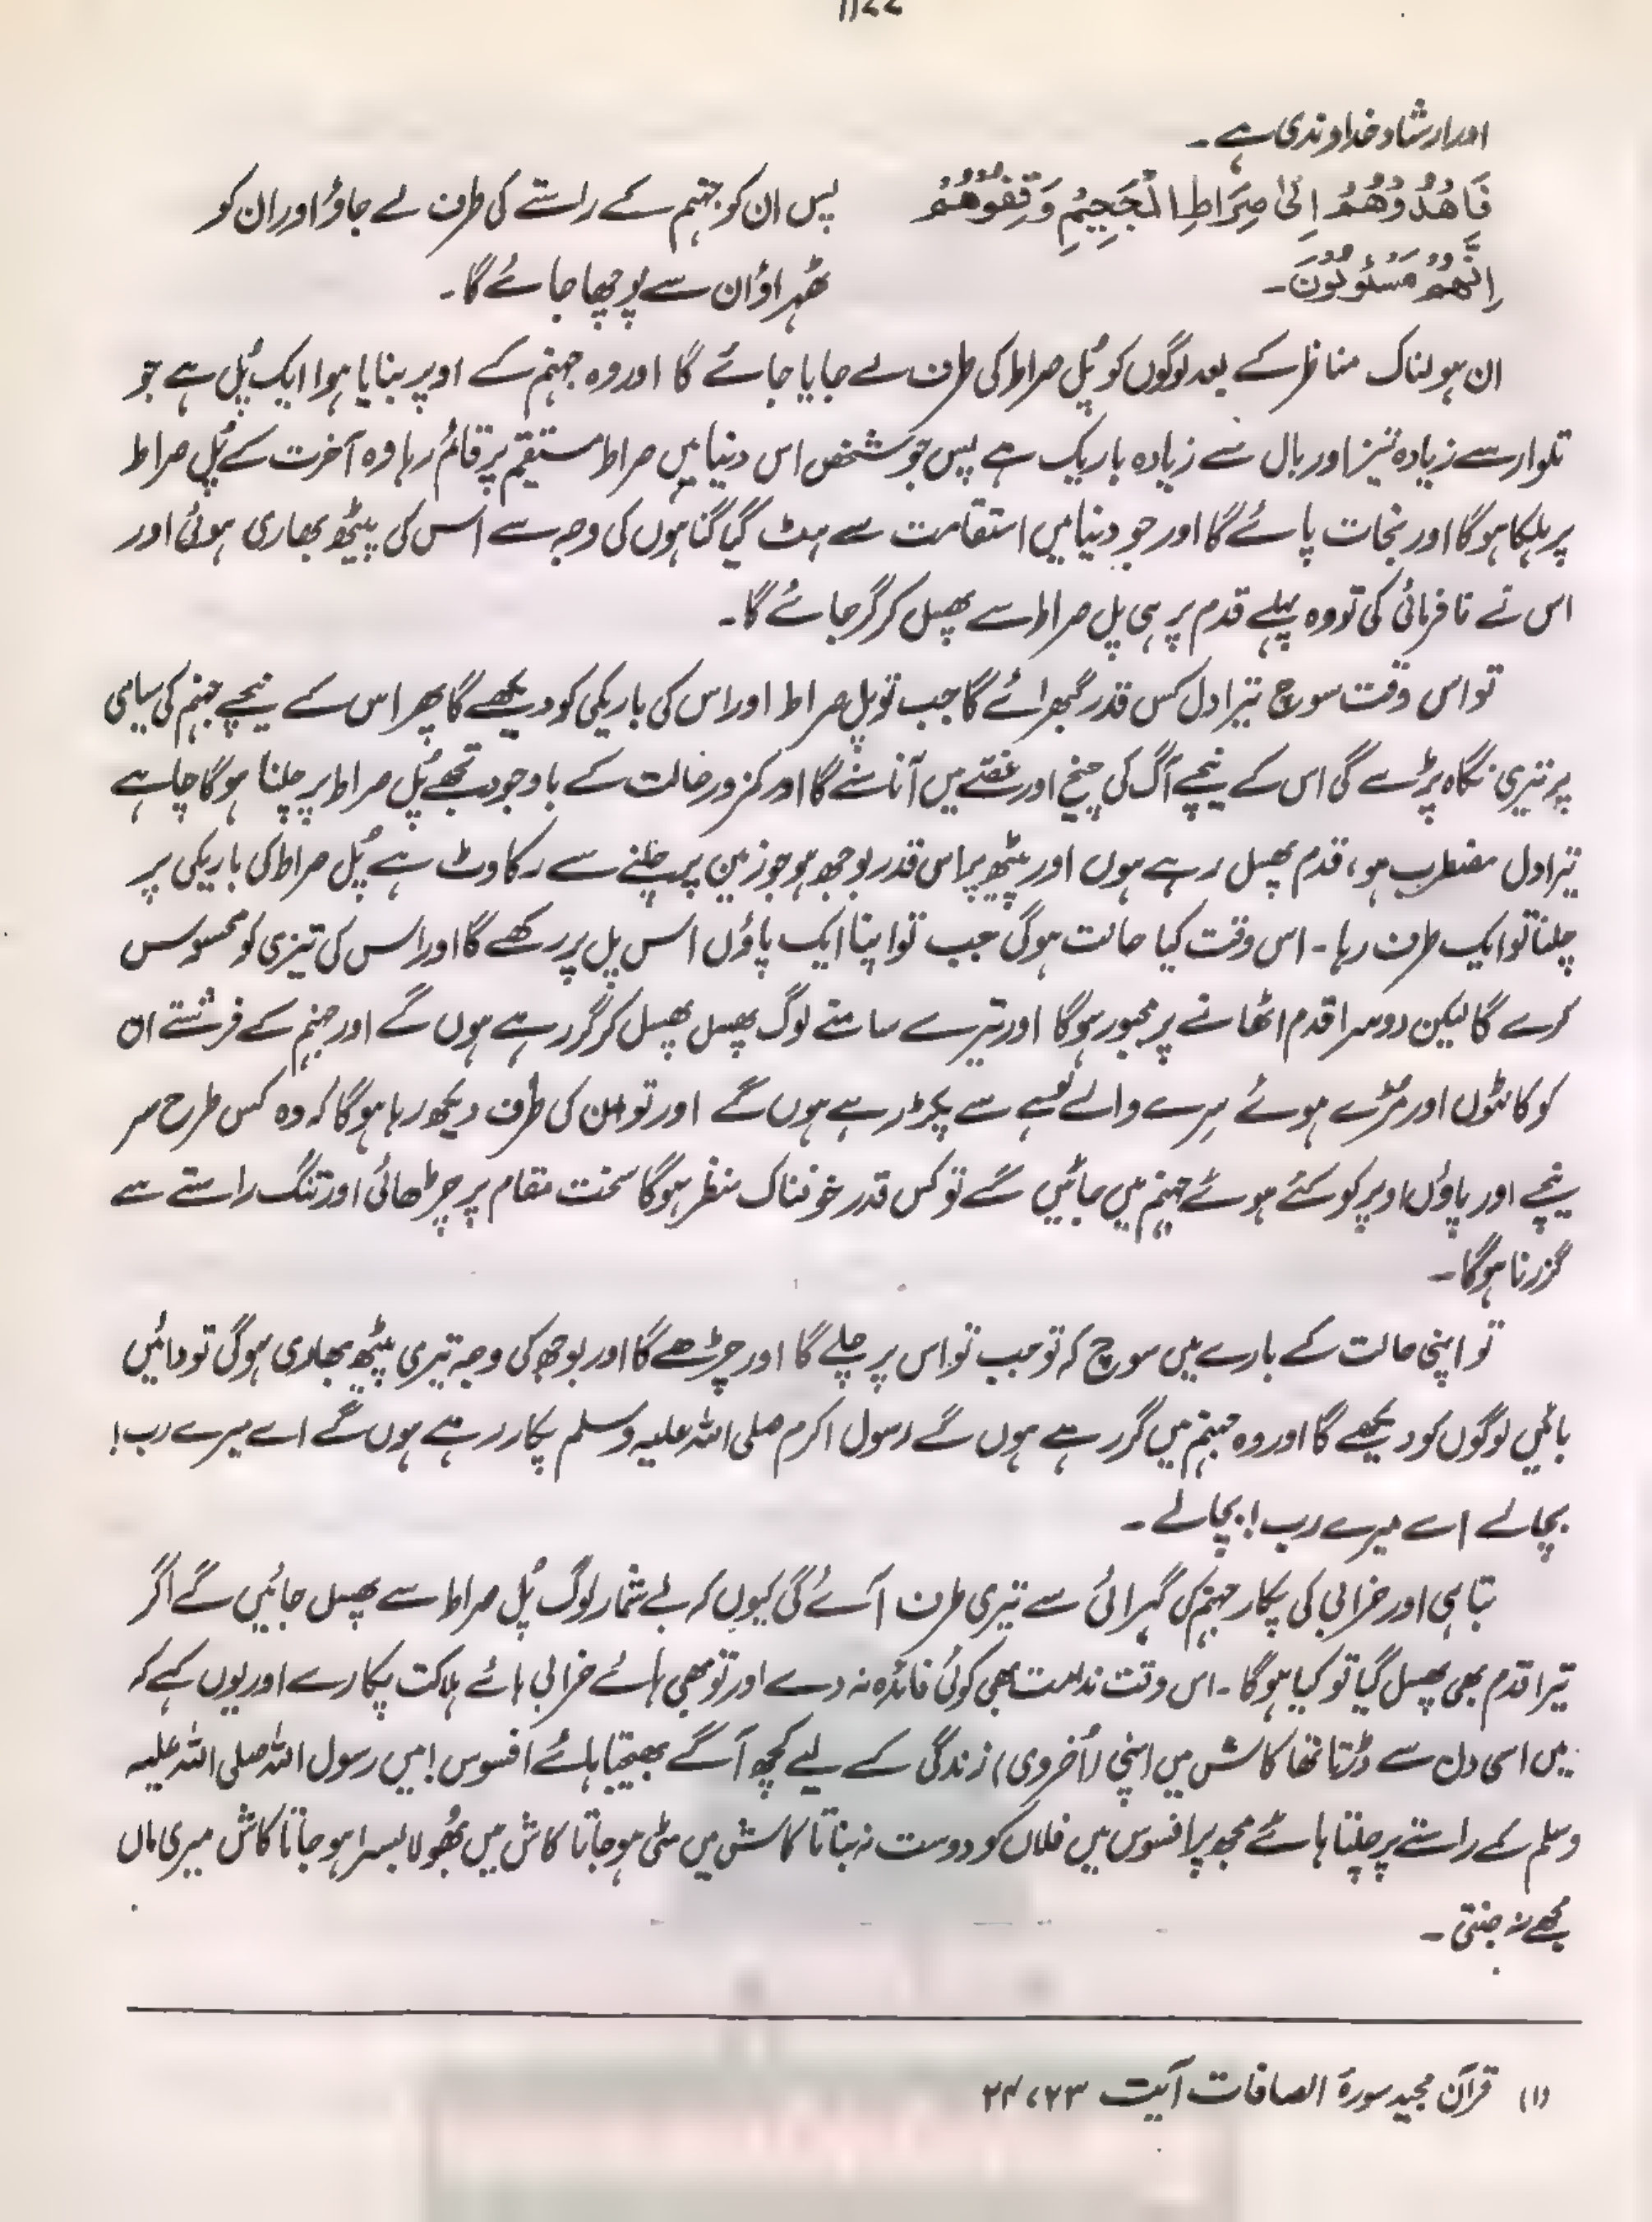 اور ارشاد خداوندی ہے۔
فَاهْدُوْهُمْ اِلٰى صِرَاطِ الْجَحِيْمِ وَقِفُوْهُمْ
اِنَّهُمْ مَسْئُوْلُوْنَ۔
پس ان کو جہنم کے راستے کی طرف لے جاؤ اور ان کو
ٹھہراؤ ان سے پوچھا جائے گا۔
ان ہولناک مناظر کے بعد لوگوں کو پُل صراط کی طرف لے جایا جائے گا اور وہ جہنم کے اوپر بنایا ہوا ایک پُل ہے جو
تلوار سے زیادہ تیز اور بال سے زیادہ باریک ہے پس جو شخص اس دنیا میں صراط مستقیم پر قائم رہا وہ آخرت کے پُل صراط
پر ہلکا ہو گا اور نجات پائے گا اور جو دنیا میں استقامت سے ہٹ گیا گناہوں کی وجہ سے اس کی پیٹھ بھاری ہوئی اور
اس نے نافرمانی کی تو وہ پہلے قدم پر ہی پل صراط سے پھسل کر گر جائے گا۔
تو اس وقت سوچ تیرا دل کس قدر گھبرائے گا جب تو پل صراط اور اس کی باریکی کو دیکھے گا پھر اس کے نیچے جہنم کی سیاہی
پر تیری نگاہ پڑے گی اس کے نیچے آگ کی چیخ اور غصے میں آنا سنے گا اور کمزور حالت کے باوجود تجھے پُل صراط پر چلنا ہو گا چاہے
تیرا دل مضطرب ہو، قدم پھسل رہے ہوں اور پیٹھ پر اس قدر بوجھ ہو جو زمین پر چلنے سے رکاوٹ ہے پُل صراط کی باریکی پر
چلنا تو ایک طرف رہا۔ اس وقت کیا حالت ہوگی جب تو اپنا ایک پاؤں اس پل پر رکھے گا اور اس کی تیزی کو محسوس
کرے گا لیکن دوسرا قدم اٹھانے پر مجبور ہو گا اور تیرے سامنے لوگ پھسل پھسل کر گر رہے ہوں گے اور جہنم کے فرشتے ان
کو کانٹوں اور مڑے ہوئے سِرے والے لوہے سے پکڑ رہے ہوں گے اور تو ان کی طرف دیکھ رہا ہو گا کہ وہ کس طرح سر
نیچے اور پاؤں اوپر کو کئے ہوئے جہنم میں جائیں گے تو کس قدر خوفناک منظر ہو گا سخت مقام پر چڑھائی اور تنگ راستے سے
گزرنا ہو گا۔
تو اپنی حالت کے بارے میں سوچ کہ تو جب تو اس پر چلے گا اور چڑھے گا اور بوجھ کی وجہ تیری پیٹھ بھاری ہوگی تو دائیں
بائیں لوگوں کو دیکھے گا اور وہ جہنم میں گر رہے ہوں گے رسول اکرم صلی اللہ علیہ وسلم پکار رہے ہوں گے اے میرے رب!
بچا لے اے میرے رب! بچا لے۔
تباہی اور خرابی کی پکار جہنم کی گہرائی سے تیری طرف آئے گی کیوں کہ بے شمار لوگ پُل صراط سے پھسل جائیں گے اگر
تیرا قدم بھی پھسل گیا تو کیا ہو گا۔ اس وقت ندامت بھی کوئی فائدہ نہ دے اور تو بھی ہائے خرابی ہائے ہلاکت پکارے اور یوں کہے کہ
میں اسی دن سے ڈرتا تھا کاش میں اپنی (اُخروی) زندگی کے لیے کچھ آگے بھیجتا ہائے افسوس! میں رسول اللہ صلی اللہ علیہ
وسلم کے راستے پر چلتا ہائے مجھ پر افسوس میں فلاں کو دوست نہ بناتا کاش میں مٹی ہو جاتا کاش میں بھُولا بسرا ہو جاتا کاش میری ماں
مجھے نہ جنتی۔
(۱) قرآن مجید سورۂ الصافات آیت ۲۳، ۲۴